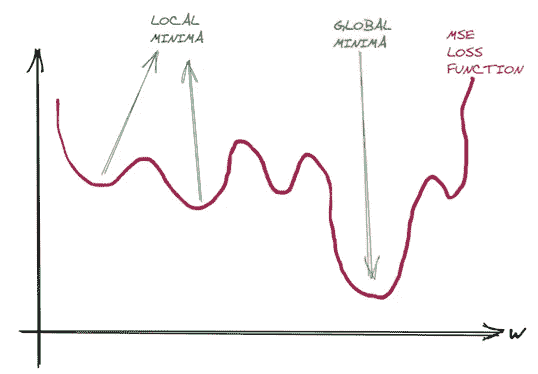 LOCAL
MINIMA
GLOBAL
MINIMA
MSE
LOSS
FUNCTION
W